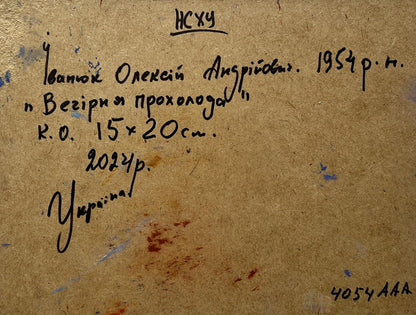 НСХУ
Іванюк Олексій Андрійович. 1954 р. н.
"Вечірня прохолода"
К.О. 15×20см.
2024р.
Україна.
4054ААА